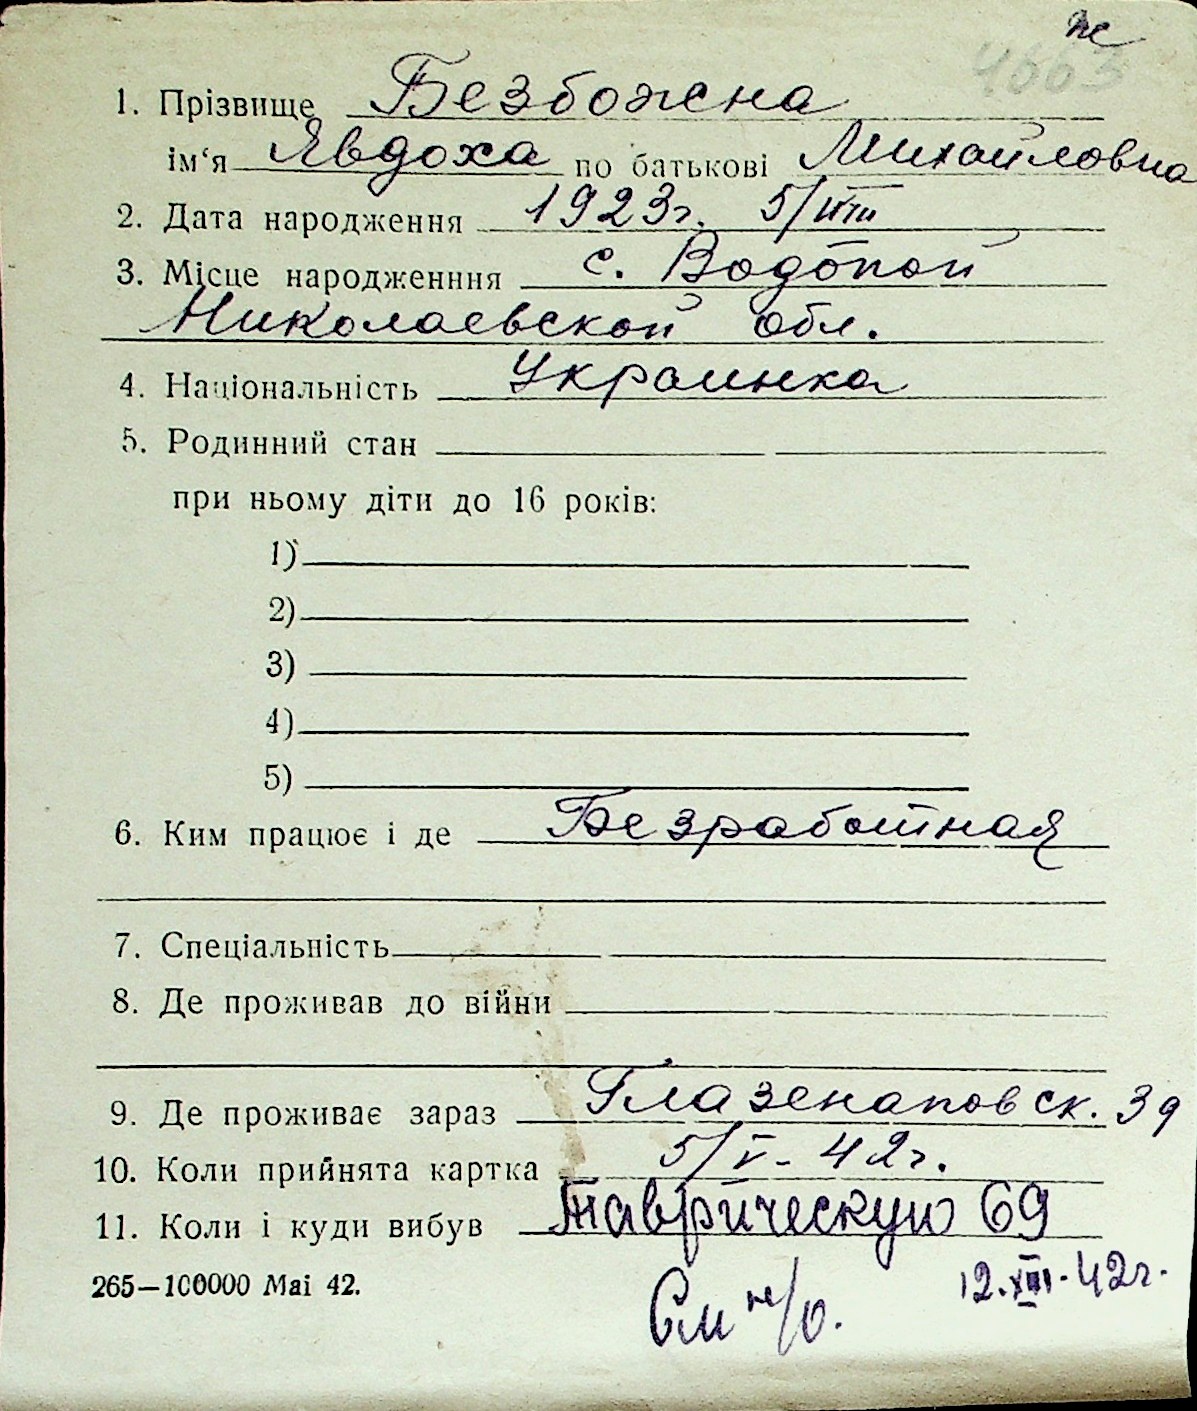 4663
1. Прізвище Безбожна
ім‘я Явдоха по батькові Михайловна
2. Дата народження 1923г. 5/VIII
3. Місце народженння с. Водопой
Николаевской обл.
4. Національність Украинка
5. Родинний стан
при ньому діти до 16 років:
1)
2)
3)
4)
5)
6. Ким працює і де Безработная
7. Спеціальність
8. Де проживав до війни
9. Де проживає зараз Глазенаповск. 39
10. Коли прийнята картка 5/V - 42г.
11. Коли і куди вибув Таврическую 69
265—100000 Mai 42.
См н/о. 42г.